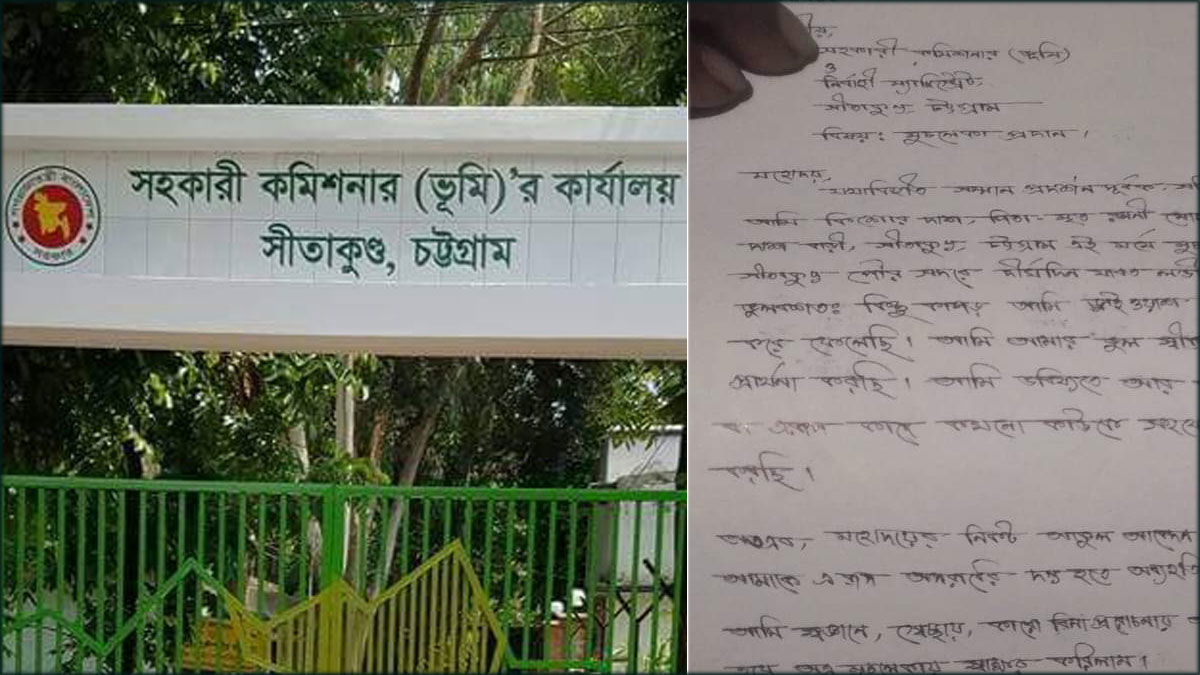 সহকারী কমিশনার (ভূমি)'র কার্যালয়
সীতাকুণ্ড, চট্টগ্রাম
গণপ্রজাতন্ত্রী বাংলাদেশ
সরকার
সহকারী কমিশনার (ভূমি)
ও
নির্বাহী ম্যাজিস্ট্রেট
সীতাকুণ্ড চট্টগ্রাম
বিষয়: মুচলেকা প্রদান।
মহোদয়,
যথাবিহীত সম্মান প্রদর্শন পূর্বক
আমি কিশোর দাশ, পিতা- মৃত
দাশ বাড়ী, সীতাকুণ্ড, চট্টগ্রাম এই মর্মে
সীতাকুণ্ড পৌর সদরে দীর্ঘদিন যাবত
ভুলবশতঃ কিছু কাগজ আমি
করে ফেলেছি। আমি আমার ভুল
প্রার্থনা করছি। আমি ভবিষ্যতে আর
কাজে কখনো কাউকে
করছি।
অতএব, মহোদয়ের নিকট আকুল আবেদন
আমাকে এ অপরাধের দন্ড হতে
আমি স্বজ্ঞানে, স্বেচ্ছায়, কারো বিনা প্ররোচনায়
মুচলেকায় স্বাক্ষর করিলাম।